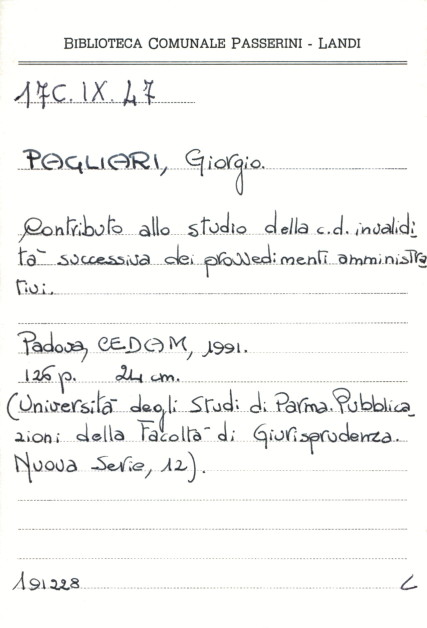 BIBLIOTECA COMUNALE PASSERINI - LANDI
17C.IX.47
PAGLIARI, Giorgio.
Contributo allo studio della c.d. invalidi_
tà successiva dei provvedimenti amministra_
tivi.
Padova, CEDAM, 1991.
126 p. 24 cm.
(Università degli Studi di Parma. Pubblica_
zioni della Facoltà di Giurisprudenza.
Nuova Serie, 12).
191228 L